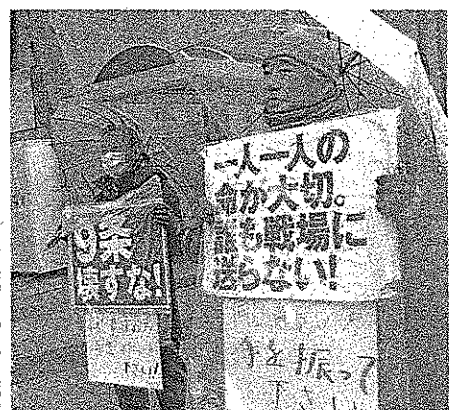 9条
壊すな!
一人一人の
命が大切。
誰も戦場に
送らない!
手を振って
下さい